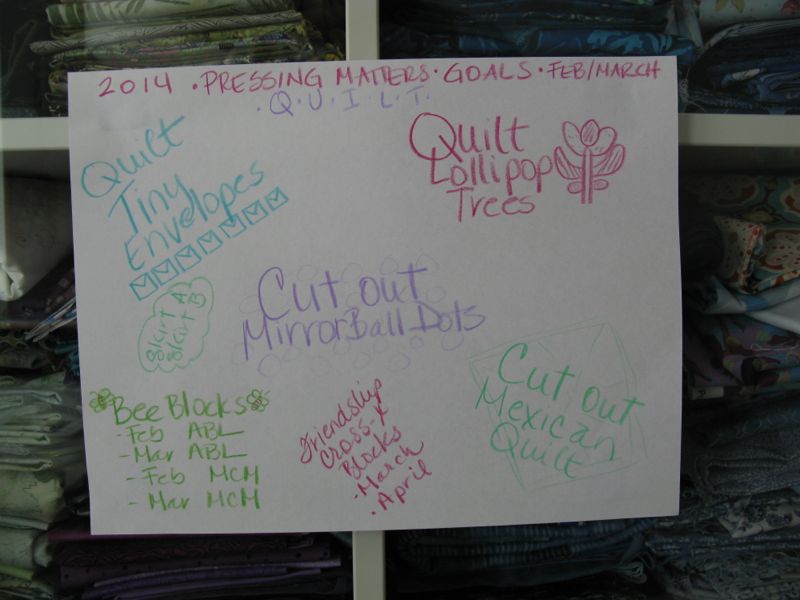 2014 · PRESSING MATTERS · GOALS · FEB/MARCH
· Q · U · I · L · T ·
Quilt
Tiny
Envelopes
Quilt
Lollipop
Trees
Skirt A
Skirt B
Cut out
MirrorBall Dots
Bee Blocks
- Feb ABL
- Mar ABL
- Feb MCM
- Mar MCM
Friendship
Cross-X
Blocks
· March
· April
Cut out
Mexican
Quilt